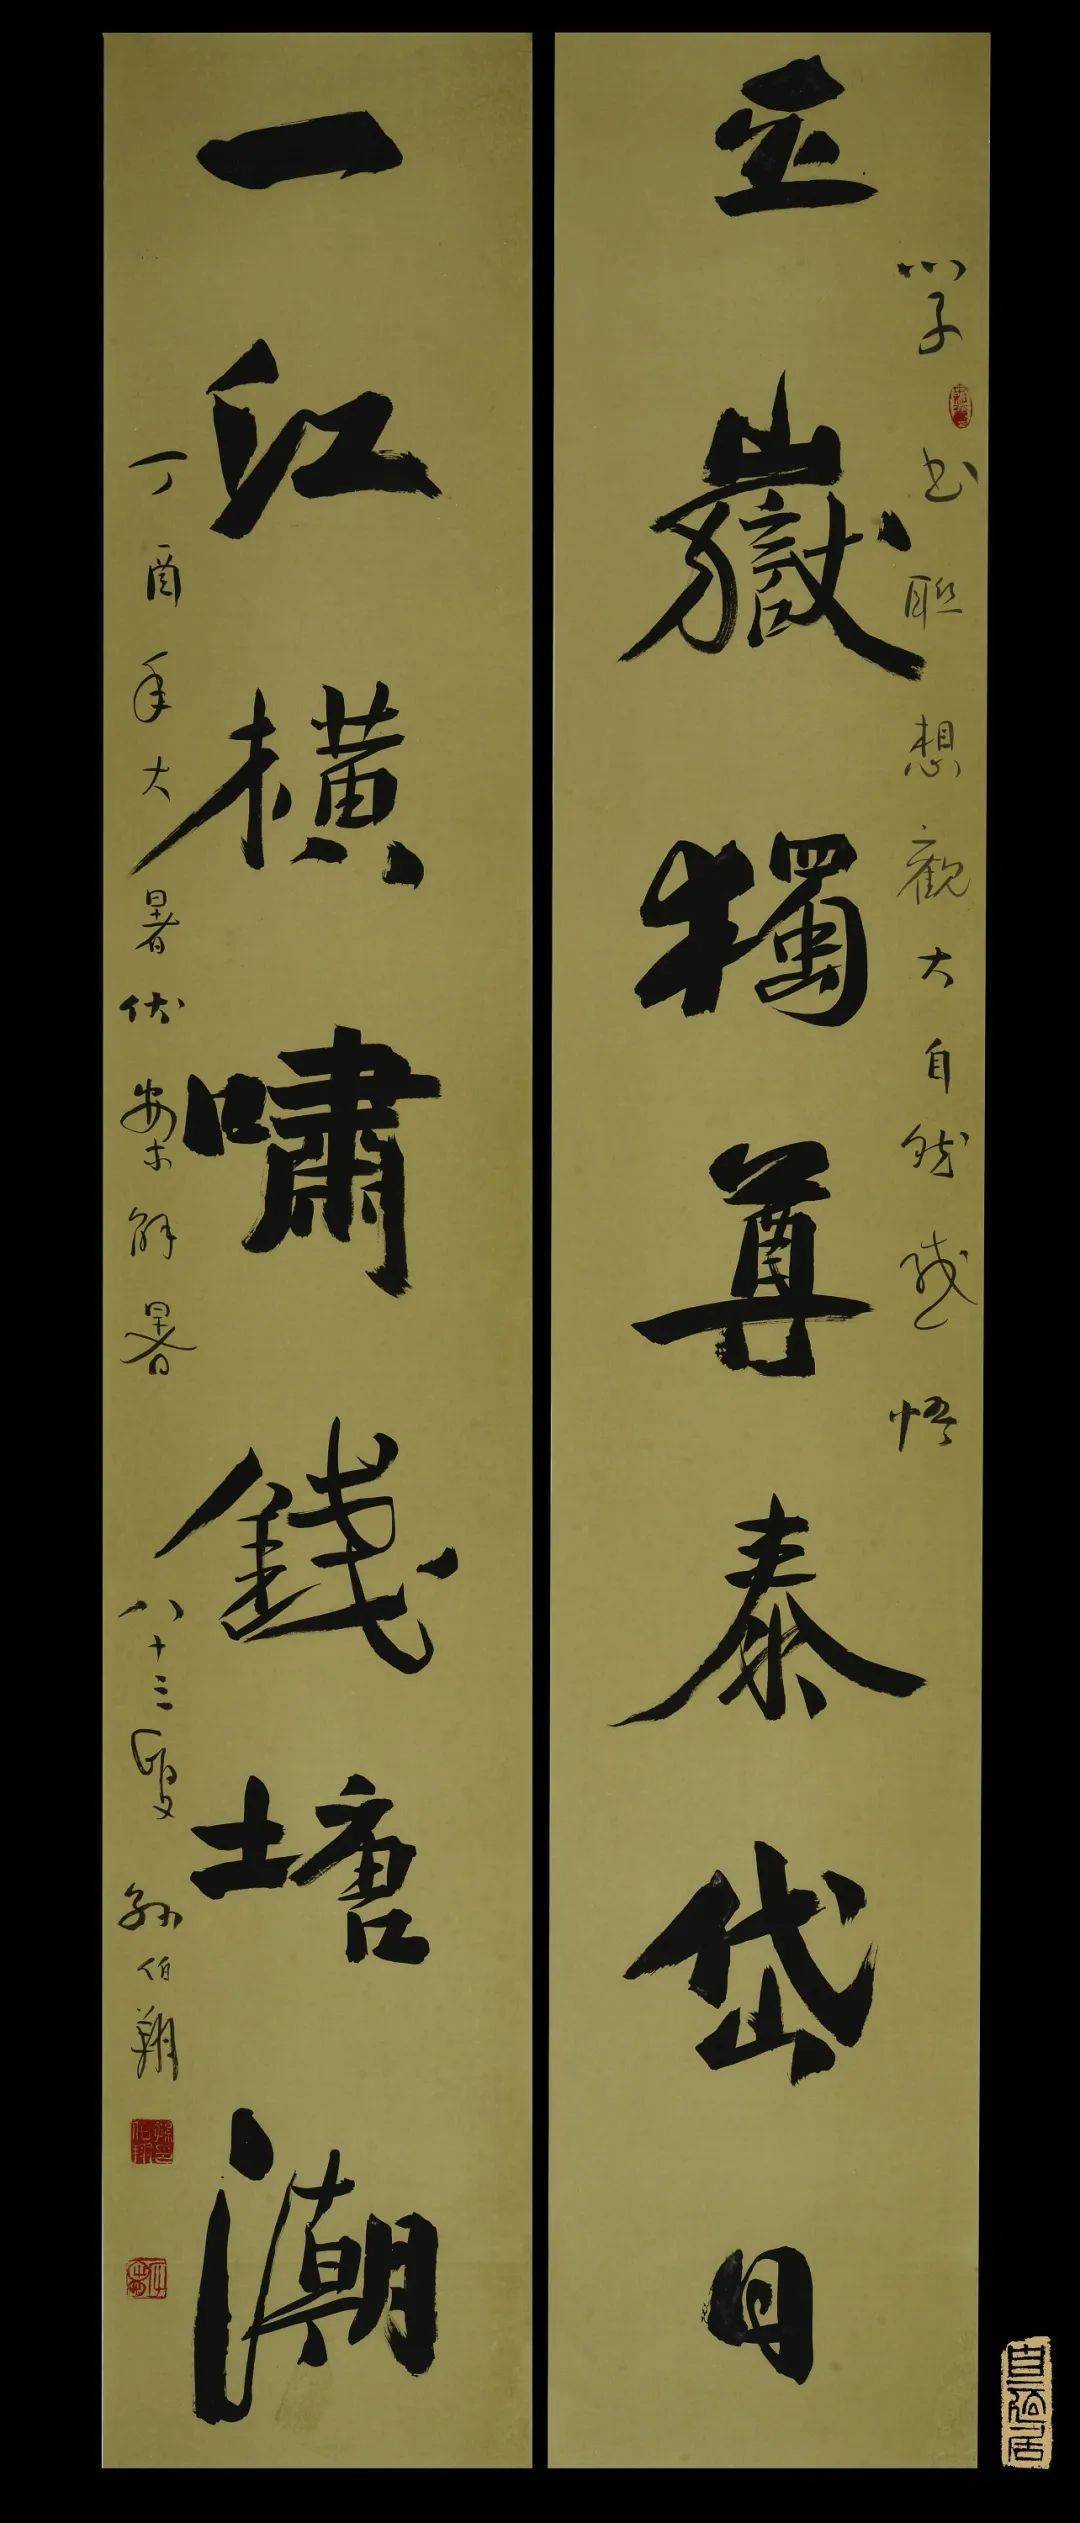 五嶽獨尊泰岱日
学书聯想觀大自然感悟
一江橫嘯錢塘潮
丁酉年大暑伏案解暑
八十三叟孫伯翔